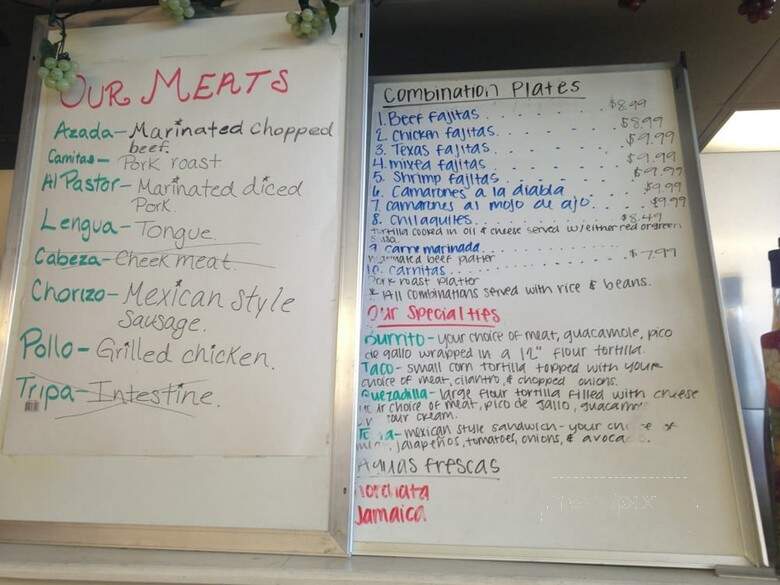 OUR MEATS
Azada- Marinated chopped
beef.
Carnitas- Pork roast
Al Pastor- Marinated diced
Pork.
Lengua- Tongue.
Cabeza- Cheek meat.
Chorizo- Mexican Style
Sausage.
Pollo- Grilled chicken.
Tripa- Intestine.
Combination Plates
1. Beef fajitas. $8.99
2. Chicken fajitas. $8.99
3. Texas fajitas. $9.99
4. mixed fajitas $9.99
5. Shrimp fajitas $9.99
6. Camarones a la diabla $9.99
7. camarones al mojo de ajo. $9.99
8. Chilaquiles. $8.49
tortilla cooked in oil & cheese served w/either red or green
salsa.
9. Carne marinada $7.99
marinated beef platter
10. Carnitas.
Pork roast Platter
* All combinations served with rice & beans.
Our Specialties
Burrito- your choice of meat, guacamole, pico
de gallo wrapped in a 12" flour tortilla.
Taco- small corn tortilla topped with your
choice of meat, cilantro, & chopped onions.
Quezadilla- large flour tortilla filled with cheese
choice of meat, pico de gallo,
sour cream.
mexican style sandwich- your of
jalapeños, tomatoes, onions, &
Aguas frescas
Horchata
Jamaica